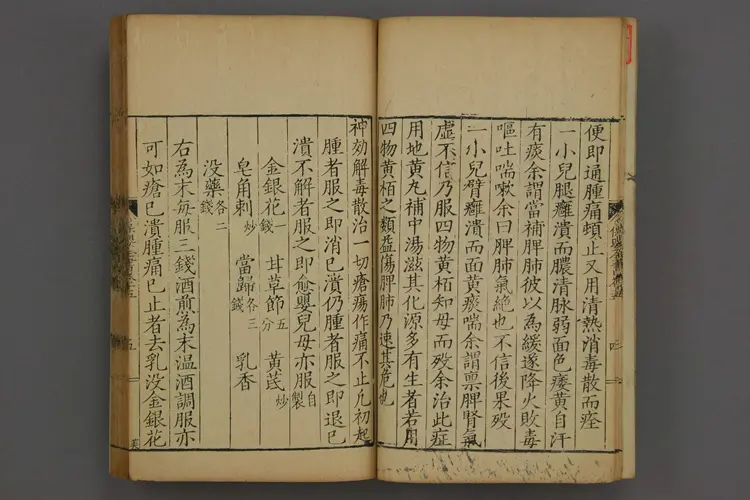 便即通腫痛頓止又用清熱消毒散而痊
一小兒腿癰潰而膿清脉弱面色痿黃自汗
有痰余謂當補脾肺彼以為緩遂降火敗毒
嘔吐喘嗽余曰脾肺氣絶也不信後果殁
一小兒臂癰潰而面黃痰喘余謂禀脾腎氣
虛不信乃服四物黃栢知母而殁余治此症
用地黃丸補中湯滋其化源多有生者若用
四物黃栢之類益傷脾肺乃速其危也
神効解毒散治一切瘡瘍作痛不止凡初起
腫者服之即消已潰仍腫者服之即退已
潰不解者服之即愈嬰兒母亦服自製
金銀花一錢 甘草節五分 黃芪炒
皂角刺炒 當歸各三錢 乳香
没藥各二錢
右為末每服三錢酒煎為末温酒調服亦
可如瘡已潰腫痛已止者去乳没金銀花
五